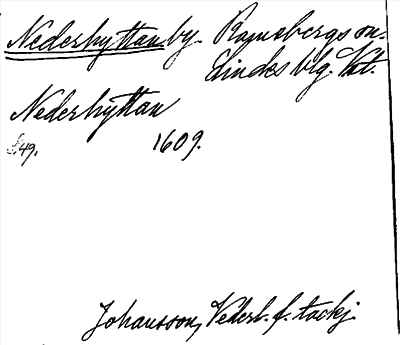 Nederhyttan by Ramsbergs sn.
Lindes blg. Vst.
Nederhyttan
S49. 1609.
Johansson, Vederl. f. tackj.